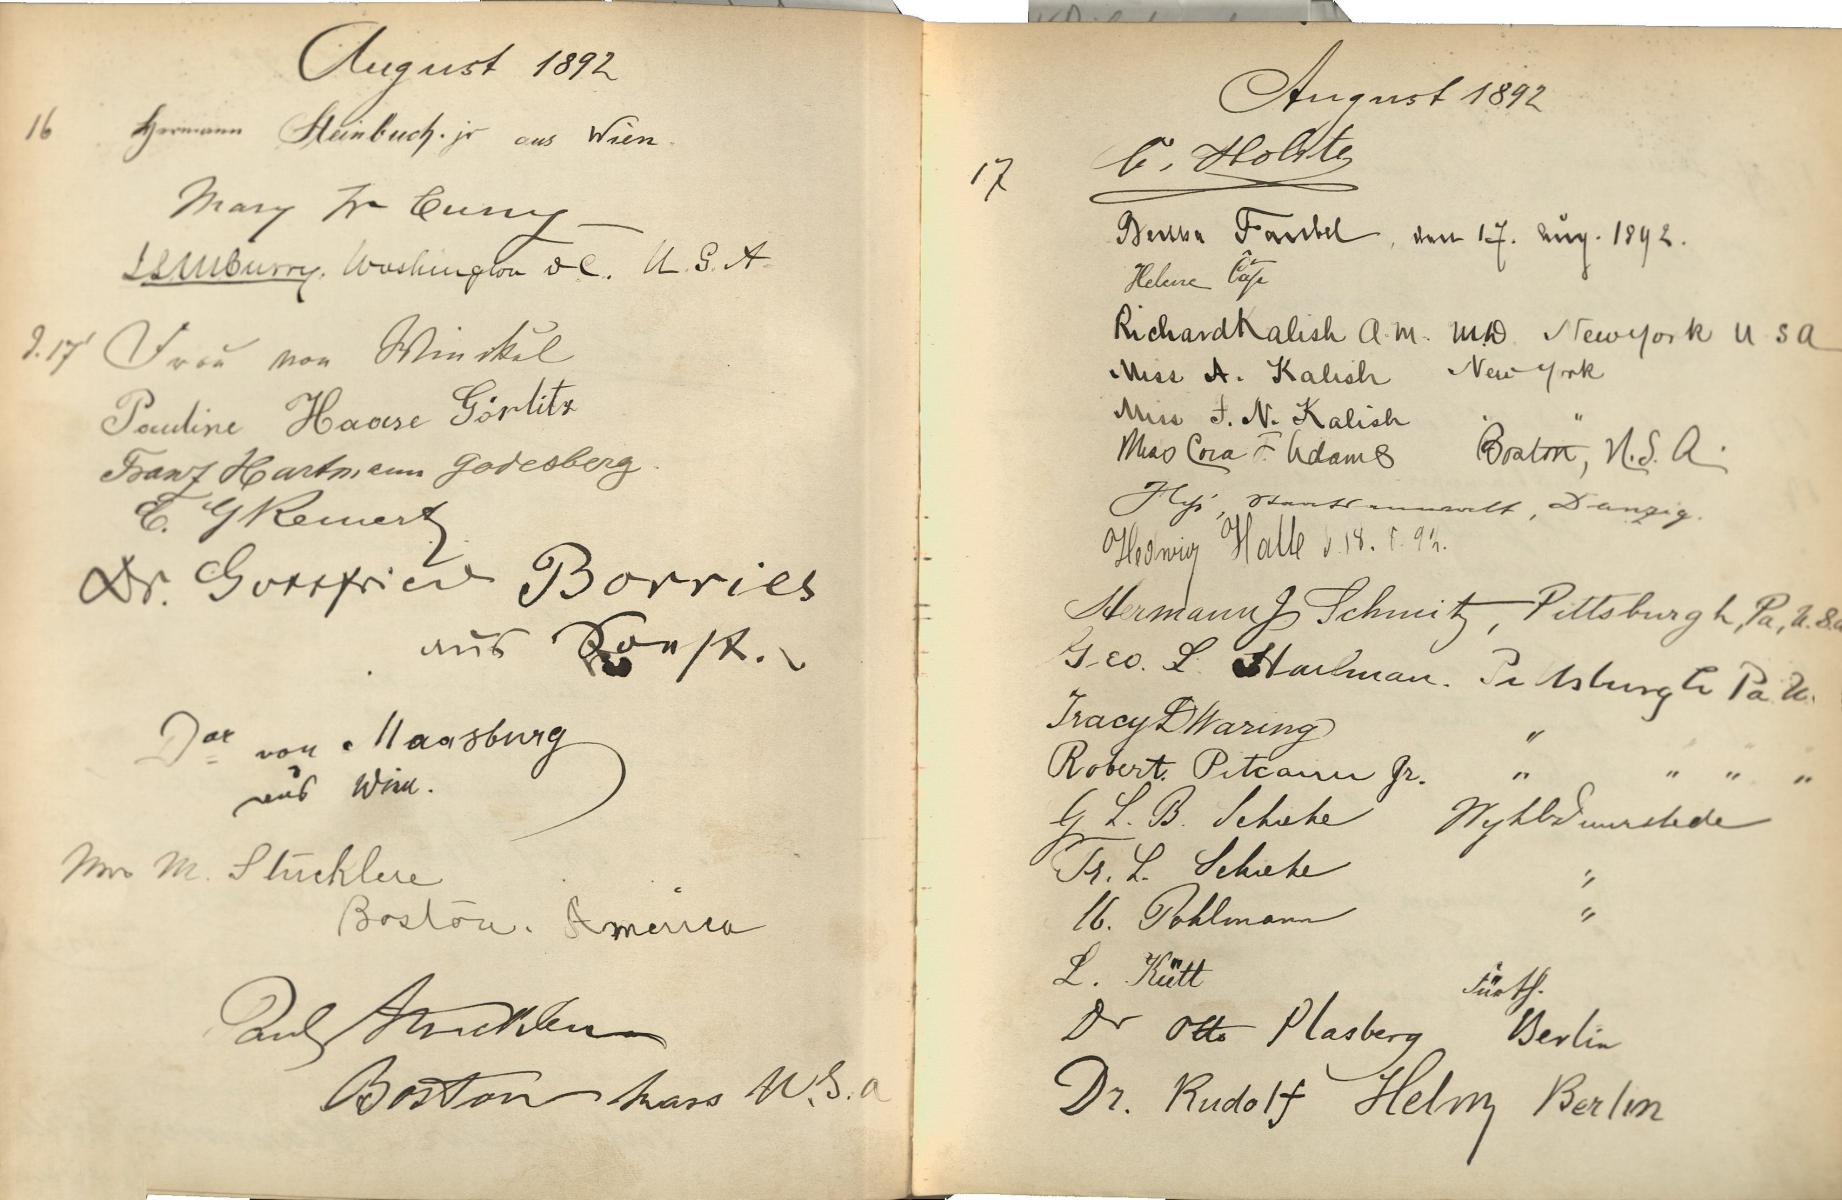 August 1892
16 Hermann Steinbuch. jr aus Wien.
Mary
Washington D C. U. S. A
d. 17 Frau von Winckel
Pauline Haase Görlitz
Franz Hartmann Godesberg.
Dr. Gottfried Borries
aus
von Maasburg
aus Wien.
Mrs M. Stücklere
Boston. America
Paul
Boston Mass U. S. A
August 1892
17 C. Holste
den 17. Aug. 1892.
Helene
Richard Kalish A. M. M.D. New York U S A
Miss A. Kalish New York
Miss F. N. Kalish " "
Miss Cora F Adams Boston, U. S. A.
Staatsanwalt, Danzig.
Hedwig Halle d. 18. 8. 92.
Hermann J Schmitz, Pittsburgh, Pa, U. S. A
Geo. L. Pittsburgh Pa U.
Tracy D Waring "
Robert Pitcairn Jr. " " " "
G L. B. Schiehe
Fr. L. Schiehe "
Pohlmann "
L. Kütt Fürth.
Dr Otto Plasberg Berlin
Dr. Rudolf Helm Berlin